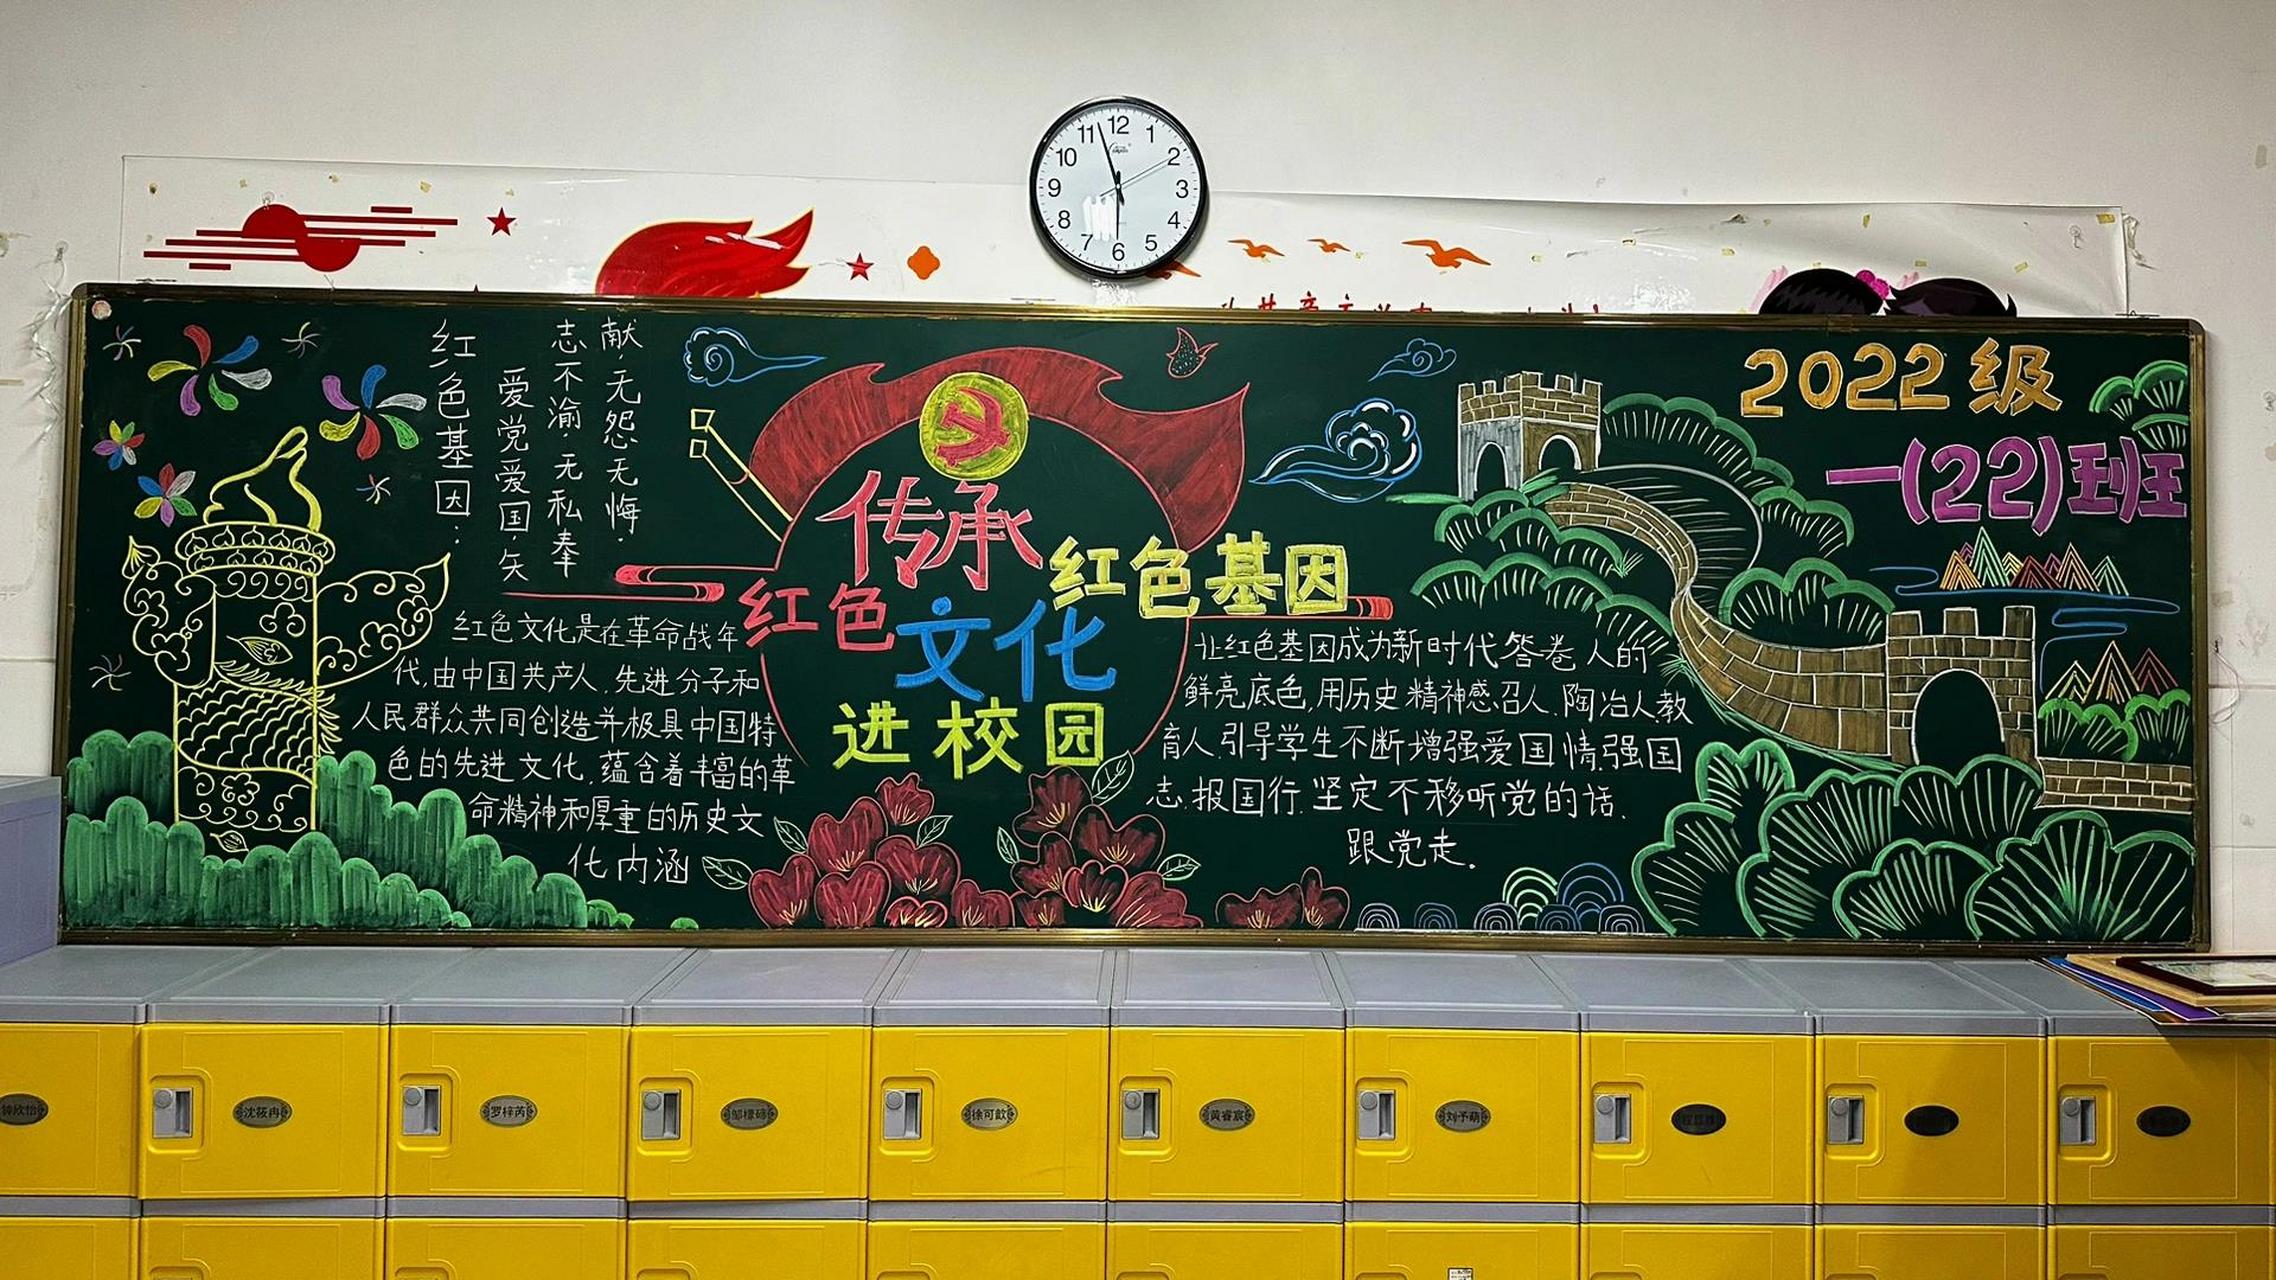 12
1
2
3
4
5
6
7
8
9
10
11
红色基因:
爱党爱国,矢
志不渝,无私奉
献,无怨无悔.
传承
红色基因
红色
文化
进校园
2022级
一(22)班
红色文化是在革命战年
代,由中国共产人,先进分子和
人民群众共同创造并极具中国特
色的先进文化,蕴含着丰富的革
命精神和厚重的历史文
化内涵
让红色基因成为新时代答卷人的
鲜亮底色,用历史精神感召人.陶冶人教
育人,引导学生不断增强爱国情,强国
志,报国行.坚定不移听党的话.
跟党走.
沈筱冉
罗梓芮
徐可歆
黄睿宸
刘予萌